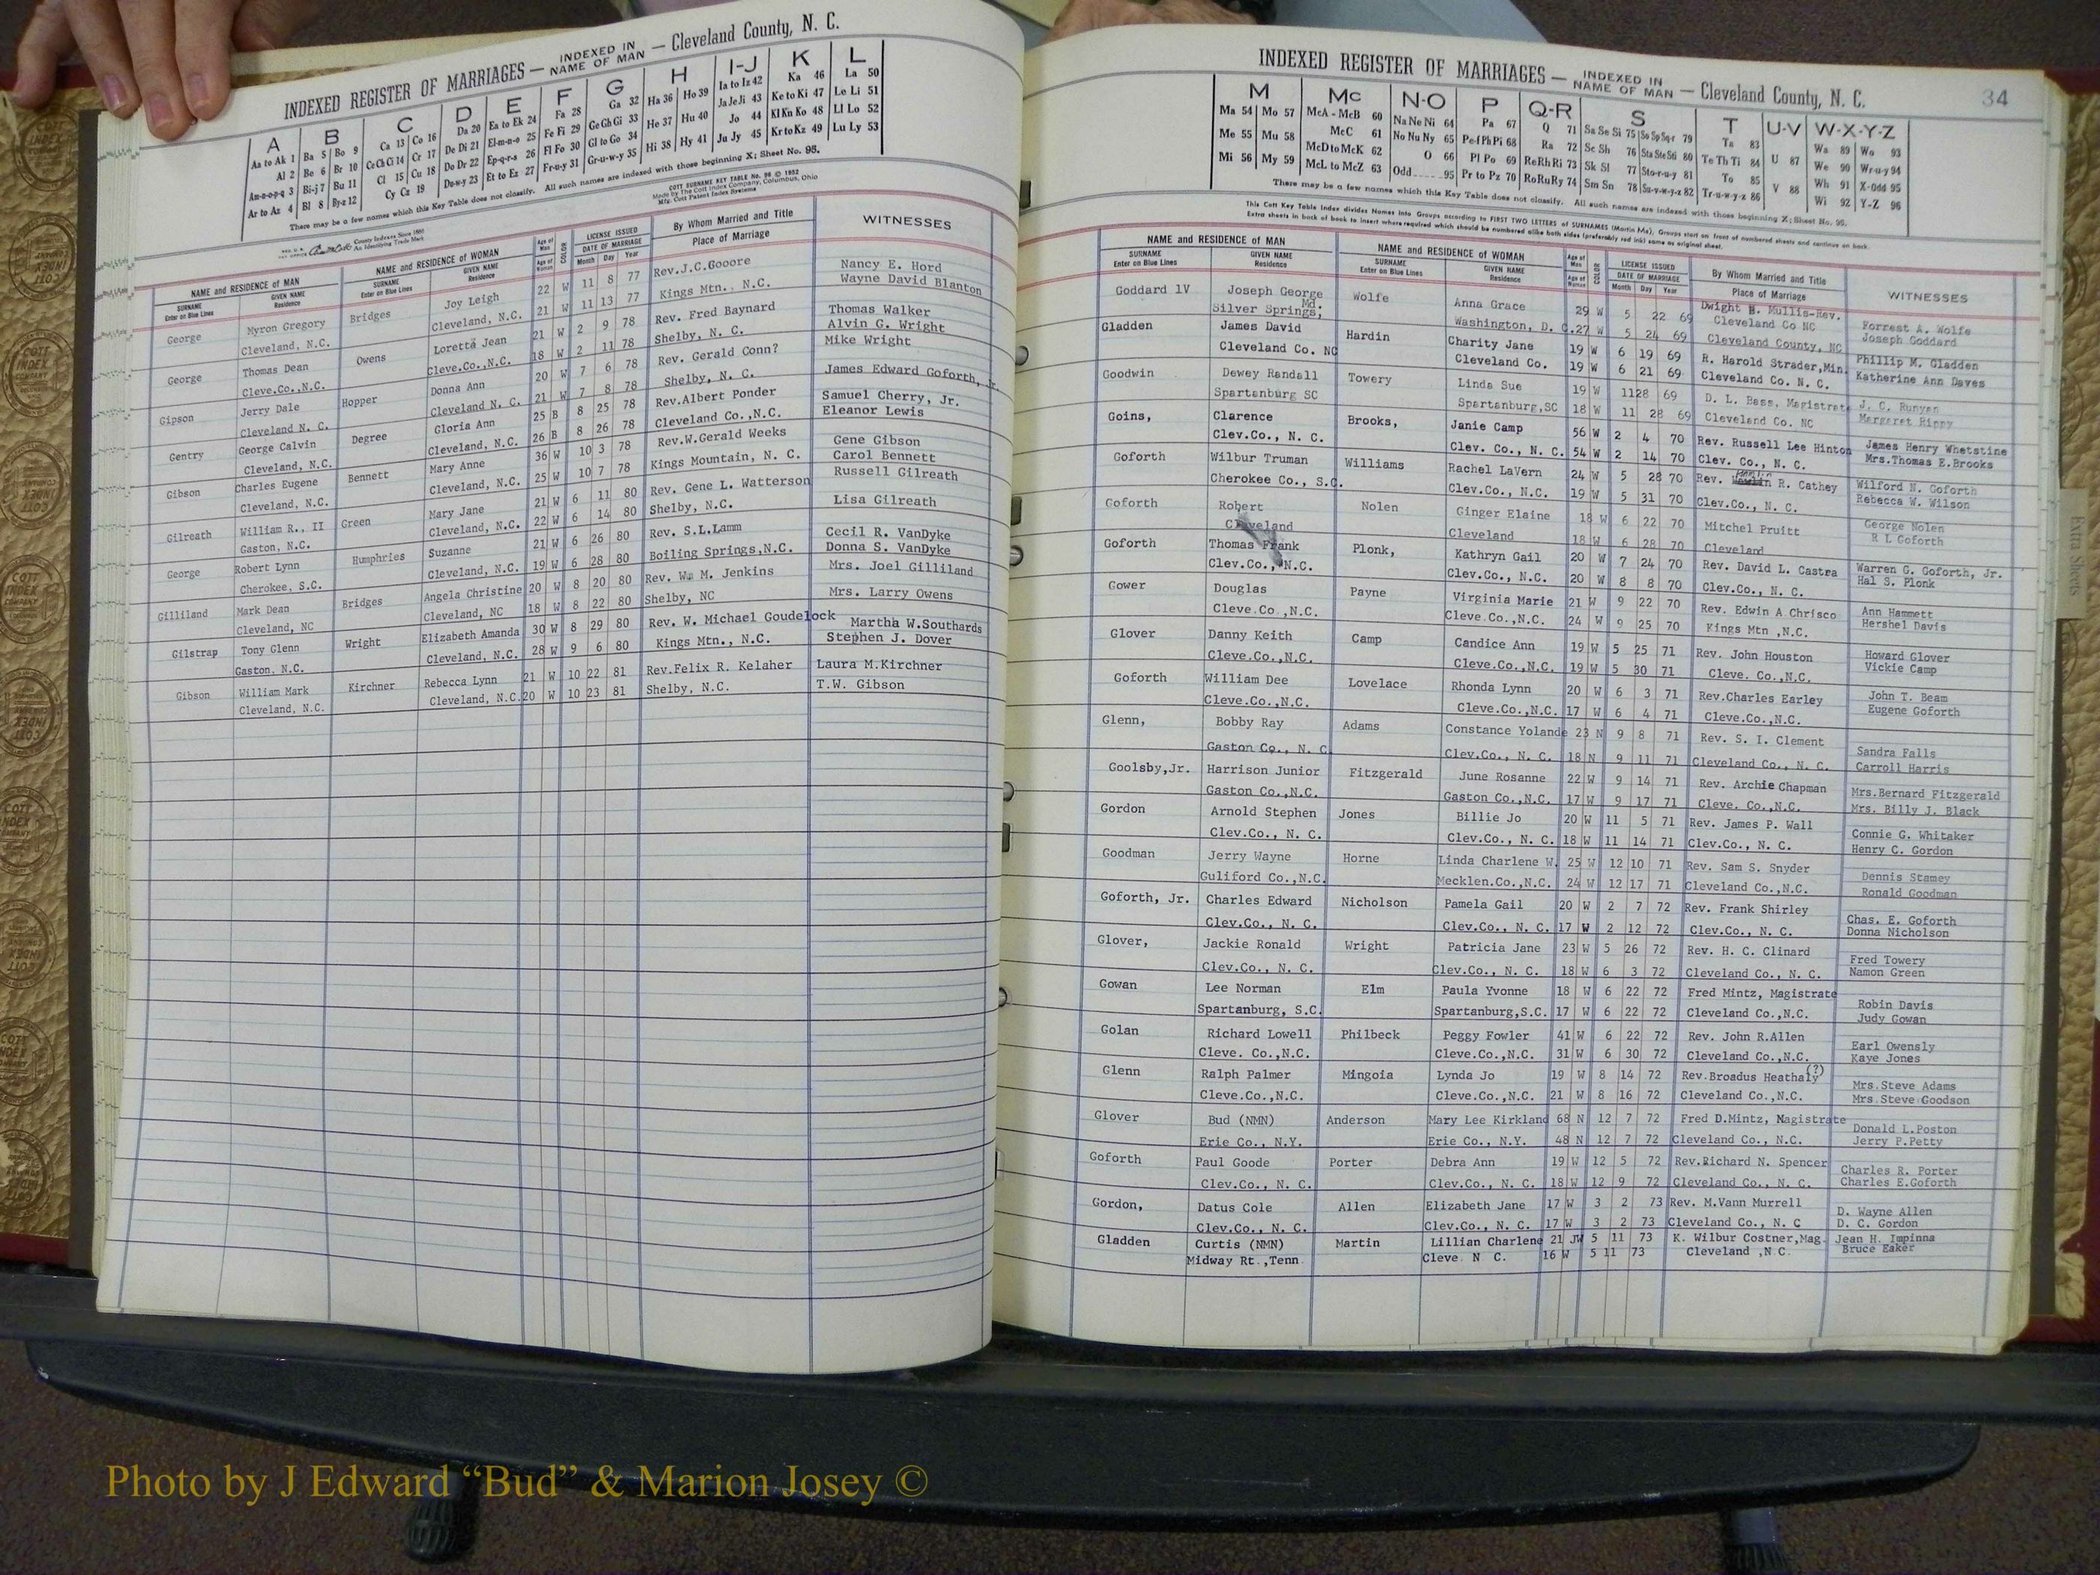 INDEXED REGISTER OF MARRIAGES — INDEXED IN NAME OF MAN — Cleveland County, N. C.
A B C D E F G H I-J K L
Aa to Ak 1 Ba 5 Bo 9 Ca 13 Co 16 Da 20 Ea to Ek 24 Fa 28 Ga 32 Ha 36 Ho 39 Ia to Iz 42 Ka 46 La 50
Al 2 Be 6 Br 10 Ce Ch Ci 14 Cr 17 De Di 21 El-m-n-o 25 Fe Fi 29 Ge Gh Gi 33 He 37 Hu 40 Ja Je Ji 43 Ke to Ki 47 Le Li 51
Am-n-o-p-q 3 Bi-j 7 Bu 11 Cl 15 Cu 18 Do Dr 22 Ep-q-r-s 26 Fl Fo 30 Gl to Go 34 Hi 38 Hy 41 Jo 44 Kl Kn Ko 48 Ll Lo 52
Ar to Az 4 Bl 8 By-z 12 Cy Cz 19 Du-w-y 23 Et to Ez 27 Fr-u-y 31 Gr-u-w-y 35 Ju Jy 45 Kr to Kz 49 Lu Ly 53
There may be a few names which this Key Table does not classify. All such names are indexed with those beginning X; Sheet No. 95.
COTT SURNAME KEY TABLE No. 96 © 1952
Made by The Cott Index Company, Columbus, Ohio
Mfg. Cott Patent Index Systems
County Indexes Since 1888
An Identifying Trade Mark
NAME and RESIDENCE of MAN NAME and RESIDENCE of WOMAN Age of Man COLOR LICENSE ISSUED By Whom Married and Title WITNESSES
SURNAME Enter on Blue Lines GIVEN NAME Residence SURNAME Enter on Blue Lines GIVEN NAME Residence Age of Woman DATE OF MARRIAGE Month Day Year Place of Marriage
George Myron Gregory Bridges Joy Leigh 22 W 11 8 77 Rev.J.C.Gooore Nancy E. Hord
Cleveland, N.C. Cleveland, N.C. 21 W 11 13 77 Kings Mtn., N.C. Wayne David Blanton
George Thomas Dean Owens Loretta Jean 21 W 2 9 78 Rev. Fred Baynard Thomas Walker
Cleve.Co.,N.C. Cleve.Co.,N.C. 18 W 2 11 78 Shelby, N. C. Alvin G. Wright
Gipson Jerry Dale Hopper Donna Ann 20 W 7 6 78 Rev. Gerald Conn? Mike Wright
Cleveland N. C. Cleveland N. C. 21 W 7 8 78 Shelby, N. C. James Edward Goforth, Jr.
Gentry George Calvin Degree Gloria Ann 25 B 8 25 78 Rev.Albert Ponder Samuel Cherry, Jr.
Cleveland, N.C. Cleveland, N.C. 26 B 8 26 78 Cleveland Co.,N.C. Eleanor Lewis
Gibson Charles Eugene Bennett Mary Anne 36 W 10 3 78 Rev.W.Gerald Weeks Gene Gibson
Cleveland, N.C. Cleveland, N.C. 25 W 10 7 78 Kings Mountain, N. C. Carol Bennett
Gilreath William R., II Green Mary Jane 21 W 6 11 80 Rev. Gene L. Watterson Russell Gilreath
Gaston, N.C. Cleveland, N.C. 22 W 6 14 80 Shelby, N.C. Lisa Gilreath
George Robert Lynn Humphries Suzanne 21 W 6 26 80 Rev. S.L.Lamm Cecil R. VanDyke
Cherokee, S.C. Cleveland, N.C. 19 W 6 28 80 Boiling Springs,N.C. Donna S. VanDyke
Gilliland Mark Dean Bridges Angela Christine 20 W 8 20 80 Rev. Wm M. Jenkins Mrs. Joel Gilliland
Cleveland, NC Cleveland, NC 18 W 8 22 80 Shelby, NC Mrs. Larry Owens
Gilstrap Tony Glenn Wright Elizabeth Amanda 30 W 8 29 80 Rev. W. Michael Goudelock Martha W.Southards
Gaston, N.C. Cleveland, N.C. 28 W 9 6 80 Kings Mtn., N.C. Stephen J. Dover
Gibson William Mark Kirchner Rebecca Lynn 21 W 10 22 81 Rev.Felix R. Kelaher Laura M.Kirchner
Cleveland, N.C. Cleveland, N.C. 20 W 10 23 81 Shelby, N.C. T.W. Gibson
INDEXED REGISTER OF MARRIAGES — INDEXED IN NAME OF MAN — Cleveland County, N. C. 34
M Mc N-O P Q-R S T U-V W-X-Y-Z
Ma 54 Mo 57 McA - McB 60 Na Ne Ni 64 Pa 67 Q 71 Sa Se Si 75 So Sp Sq-r 79 Ta 83 Wa 89 Wo 93
Me 55 Mu 58 McC 61 No Nu Ny 65 Pe-f Ph Pi 68 Ra 72 Sc Sh 76 Sta Ste Sti 80 Te Th Ti 84 U 87 We 90 Wr-u-y 94
Mi 56 My 59 McD to McK 62 O 66 Pl Po 69 Re Rh Ri 73 Sk Sl 77 Sto-r-u-y 81 To 85 Wh 91 X-Odd 95
McL to McZ 63 Odd 95 Pr to Pz 70 Ro Ru Ry 74 Sm Sn 78 Su-v-w-y-z 82 Tr-u-w-y-z 86 V 88 Wi 92 Y-Z 96
There may be a few names which this Key Table does not classify. All such names are indexed with those beginning X; Sheet No. 95.
This Cott Key Table Index divides Names into Groups according to FIRST TWO LETTERS of SURNAMES (Martin Ma), Groups start on front of numbered sheets and continue on back.
Extra sheets in back of book to insert where required which should be numbered alike both sides (preferably red ink) same as original sheet.
NAME and RESIDENCE of MAN NAME and RESIDENCE of WOMAN Age of Man COLOR LICENSE ISSUED By Whom Married and Title WITNESSES
SURNAME Enter on Blue Lines GIVEN NAME Residence SURNAME Enter on Blue Lines GIVEN NAME Residence Age of Woman DATE OF MARRIAGE Month Day Year Place of Marriage
Goddard 1V Joseph George Wolfe Anna Grace 29 W 5 22 69 Dwight B. Mullis-Rev. Forrest A. Wolfe
Silver Springs, Md. Washington, D. C. 27 W 5 24 69 Cleveland Co NC Joseph Goddard
Gladden James David Hardin Charity Jane 19 W 6 19 69 Cleveland County, NC R. Harold Strader,Min. Phillip M. Gladden
Cleveland Co. NC Cleveland Co. 19 W 6 21 69 Cleveland Co. N. C. Katherine Ann Daves
Goodwin Dewey Randall Towery Linda Sue 19 W 11 28 69 D. L. Bass, Magistrate J. C. Runyan
Spartanburg SC Spartanburg,SC 18 W 11 28 69 Cleveland Co. NC Margaret Rippy
Goins, Clarence Brooks, Janie Camp 56 W 2 4 70 Rev. Russell Lee Hinton James Henry Whetstine
Clev.Co., N. C. Clev. Co., N. C. 54 W 2 14 70 Clev. Co., N. C. Mrs.Thomas E.Brooks
Goforth Wilbur Truman Williams Rachel LaVern 24 W 5 28 70 Rev. R. Cathey Wilford N. Goforth
Cherokee Co., S.C. Clev.Co., N.C. 19 W 5 31 70 Clev.Co., N. C. Rebecca W. Wilson
Goforth Robert Nolen Ginger Elaine 18 W 6 22 70 Mitchel Pruitt George Nolen
Cleveland Cleveland 18 W 6 28 70 Cleveland R L Goforth
Goforth Thomas Frank Plonk, Kathryn Gail 20 W 7 24 70 Rev. David L. Castra Warren G. Goforth, Jr.
Clev.Co., N.C. Clev.Co., N.C. 20 W 8 8 70 Clev.Co., N. C. Hal S. Plonk
Gower Douglas Payne Virginia Marie 21 W 9 22 70 Rev. Edwin A Chrisco Ann Hammett
Cleve.Co.,N.C. Cleve.Co.,N.C. 24 W 9 25 70 Kings Mtn ,N.C. Hershel Davis
Glover Danny Keith Camp Candice Ann 19 W 5 25 71 Rev. John Houston Howard Glover
Cleve.Co.,N.C. Cleve.Co.,N.C. 19 W 5 30 71 Cleve. Co.,N.C. Vickie Camp
Goforth William Dee Lovelace Rhonda Lynn 20 W 6 3 71 Rev.Charles Earley John T. Beam
Cleve.Co.,N.C. Cleve.Co.,N.C. 17 W 6 4 71 Cleve.Co.,N.C. Eugene Goforth
Glenn, Bobby Ray Adams Constance Yolande 23 N 9 8 71 Rev. S. I. Clement Sandra Falls
Gaston Co., N. C. Clev.Co., N. C. 18 N 9 11 71 Cleveland Co., N. C. Carroll Harris
Goolsby,Jr. Harrison Junior Fitzgerald June Rosanne 22 W 9 14 71 Rev. Archie Chapman Mrs.Bernard Fitzgerald
Gaston Co.,N.C. Gaston Co.,N.C. 17 W 9 17 71 Cleve. Co.,N.C. Mrs. Billy J. Black
Gordon Arnold Stephen Jones Billie Jo 20 W 11 5 71 Rev. James P. Wall Connie G. Whitaker
Clev.Co., N. C. Clev.Co., N. C. 18 W 11 14 71 Clev.Co., N. C. Henry C. Gordon
Goodman Jerry Wayne Horne Linda Charlene W. 25 W 12 10 71 Rev. Sam S. Snyder Dennis Stamey
Guliford Co.,N.C. Mecklen.Co.,N.C. 24 W 12 17 71 Cleveland Co.,N.C. Ronald Goodman
Goforth, Jr. Charles Edward Nicholson Pamela Gail 20 W 2 7 72 Rev. Frank Shirley Chas. E. Goforth
Clev.Co., N. C. Clev.Co., N. C. 17 W 2 12 72 Clev.Co., N. C. Donna Nicholson
Glover, Jackie Ronald Wright Patricia Jane 23 W 5 26 72 Rev. H. C. Clinard Fred Towery
Clev.Co., N. C. Clev.Co., N. C. 18 W 6 3 72 Cleveland Co., N. C. Namon Green
Gowan Lee Norman Elm Paula Yvonne 18 W 6 22 72 Fred Mintz, Magistrate Robin Davis
Spartanburg, S.C. Spartanburg,S.C. 17 W 6 22 72 Cleveland Co.,N.C. Judy Gowan
Golan Richard Lowell Philbeck Peggy Fowler 41 W 6 22 72 Rev. John R.Allen Earl Owensly
Cleve. Co.,N.C. Cleve.Co.,N.C. 31 W 6 30 72 Cleveland Co.,N.C. Kaye Jones
Glenn Ralph Palmer Mingoia Lynda Jo 19 W 8 14 72 Rev.Broadus Heathaly (?) Mrs.Steve Adams
Cleve.Co.,N.C. Cleve.Co.,N.C. 21 W 8 16 72 Cleveland Co.,N.C. Mrs.Steve Goodson
Glover Bud (NMN) Anderson Mary Lee Kirkland 68 N 12 7 72 Fred D.Mintz, Magistrate Donald L.Poston
Erie Co., N.Y. Erie Co., N.Y. 48 N 12 7 72 Cleveland Co., N.C. Jerry P.Petty
Goforth Paul Goode Porter Debra Ann 19 W 12 5 72 Rev.Richard N. Spencer Charles R. Porter
Clev.Co., N. C. Clev.Co., N. C. 18 W 12 9 72 Cleveland Co., N. C. Charles E.Goforth
Gordon, Datus Cole Allen Elizabeth Jane 17 W 3 2 73 Rev. M.Vann Murrell D. Wayne Allen
Clev.Co., N. C. Clev.Co., N. C. 17 W 3 2 73 Cleveland Co., N. C D. C. Gordon
Gladden Curtis (NMN) Martin Lillian Charlene 21 W 5 11 73 K. Wilbur Costner,Mag. Jean H. Impinna
Midway Rt.,Tenn Cleve N C. 16 W 5 11 73 Cleveland ,N C Bruce Eaker
Extra Sheets
Photo by J Edward “Bud” & Marion Josey ©